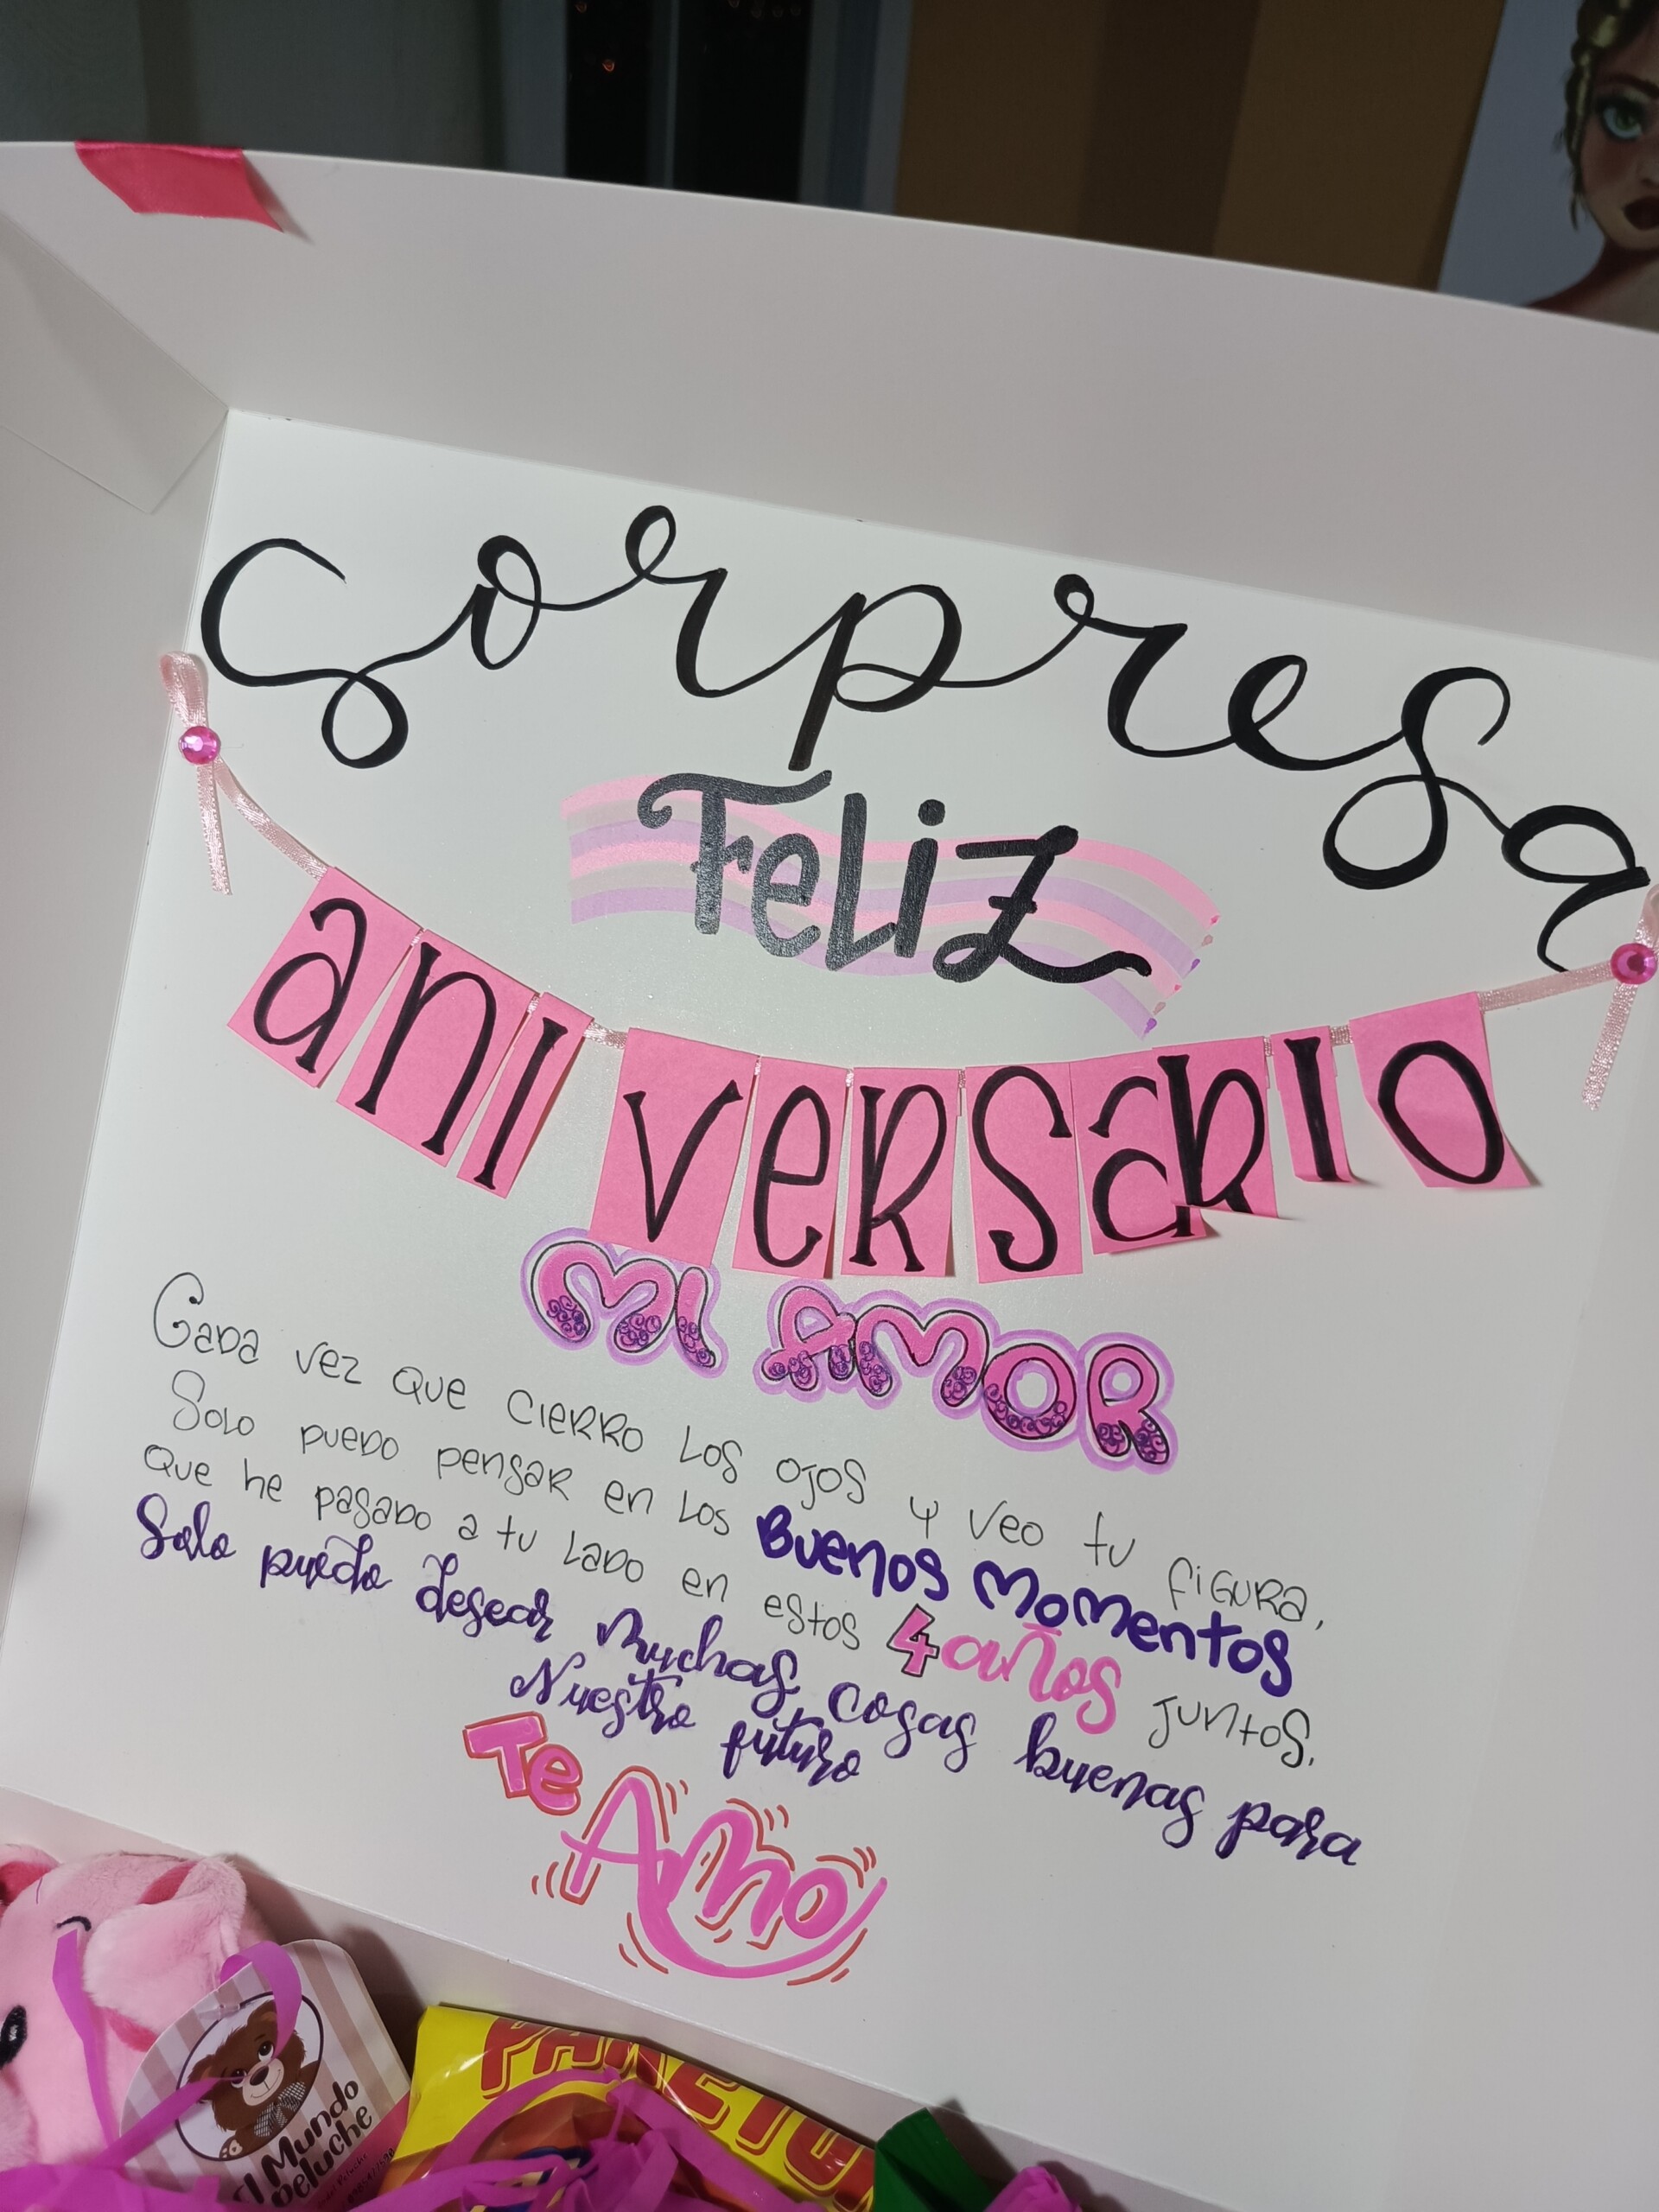 Sorpresa
Feliz
aniversario
MI AMOR
Cada vez que cierro los ojos y veo tu figura,
Solo puedo pensar en los Buenos Momentos
que he pasado a tu lado en estos 4 años juntos.
Solo puedo desear muchas cosas buenas para
Nuestro futuro
Te
Amo
El Mundo
Peluche